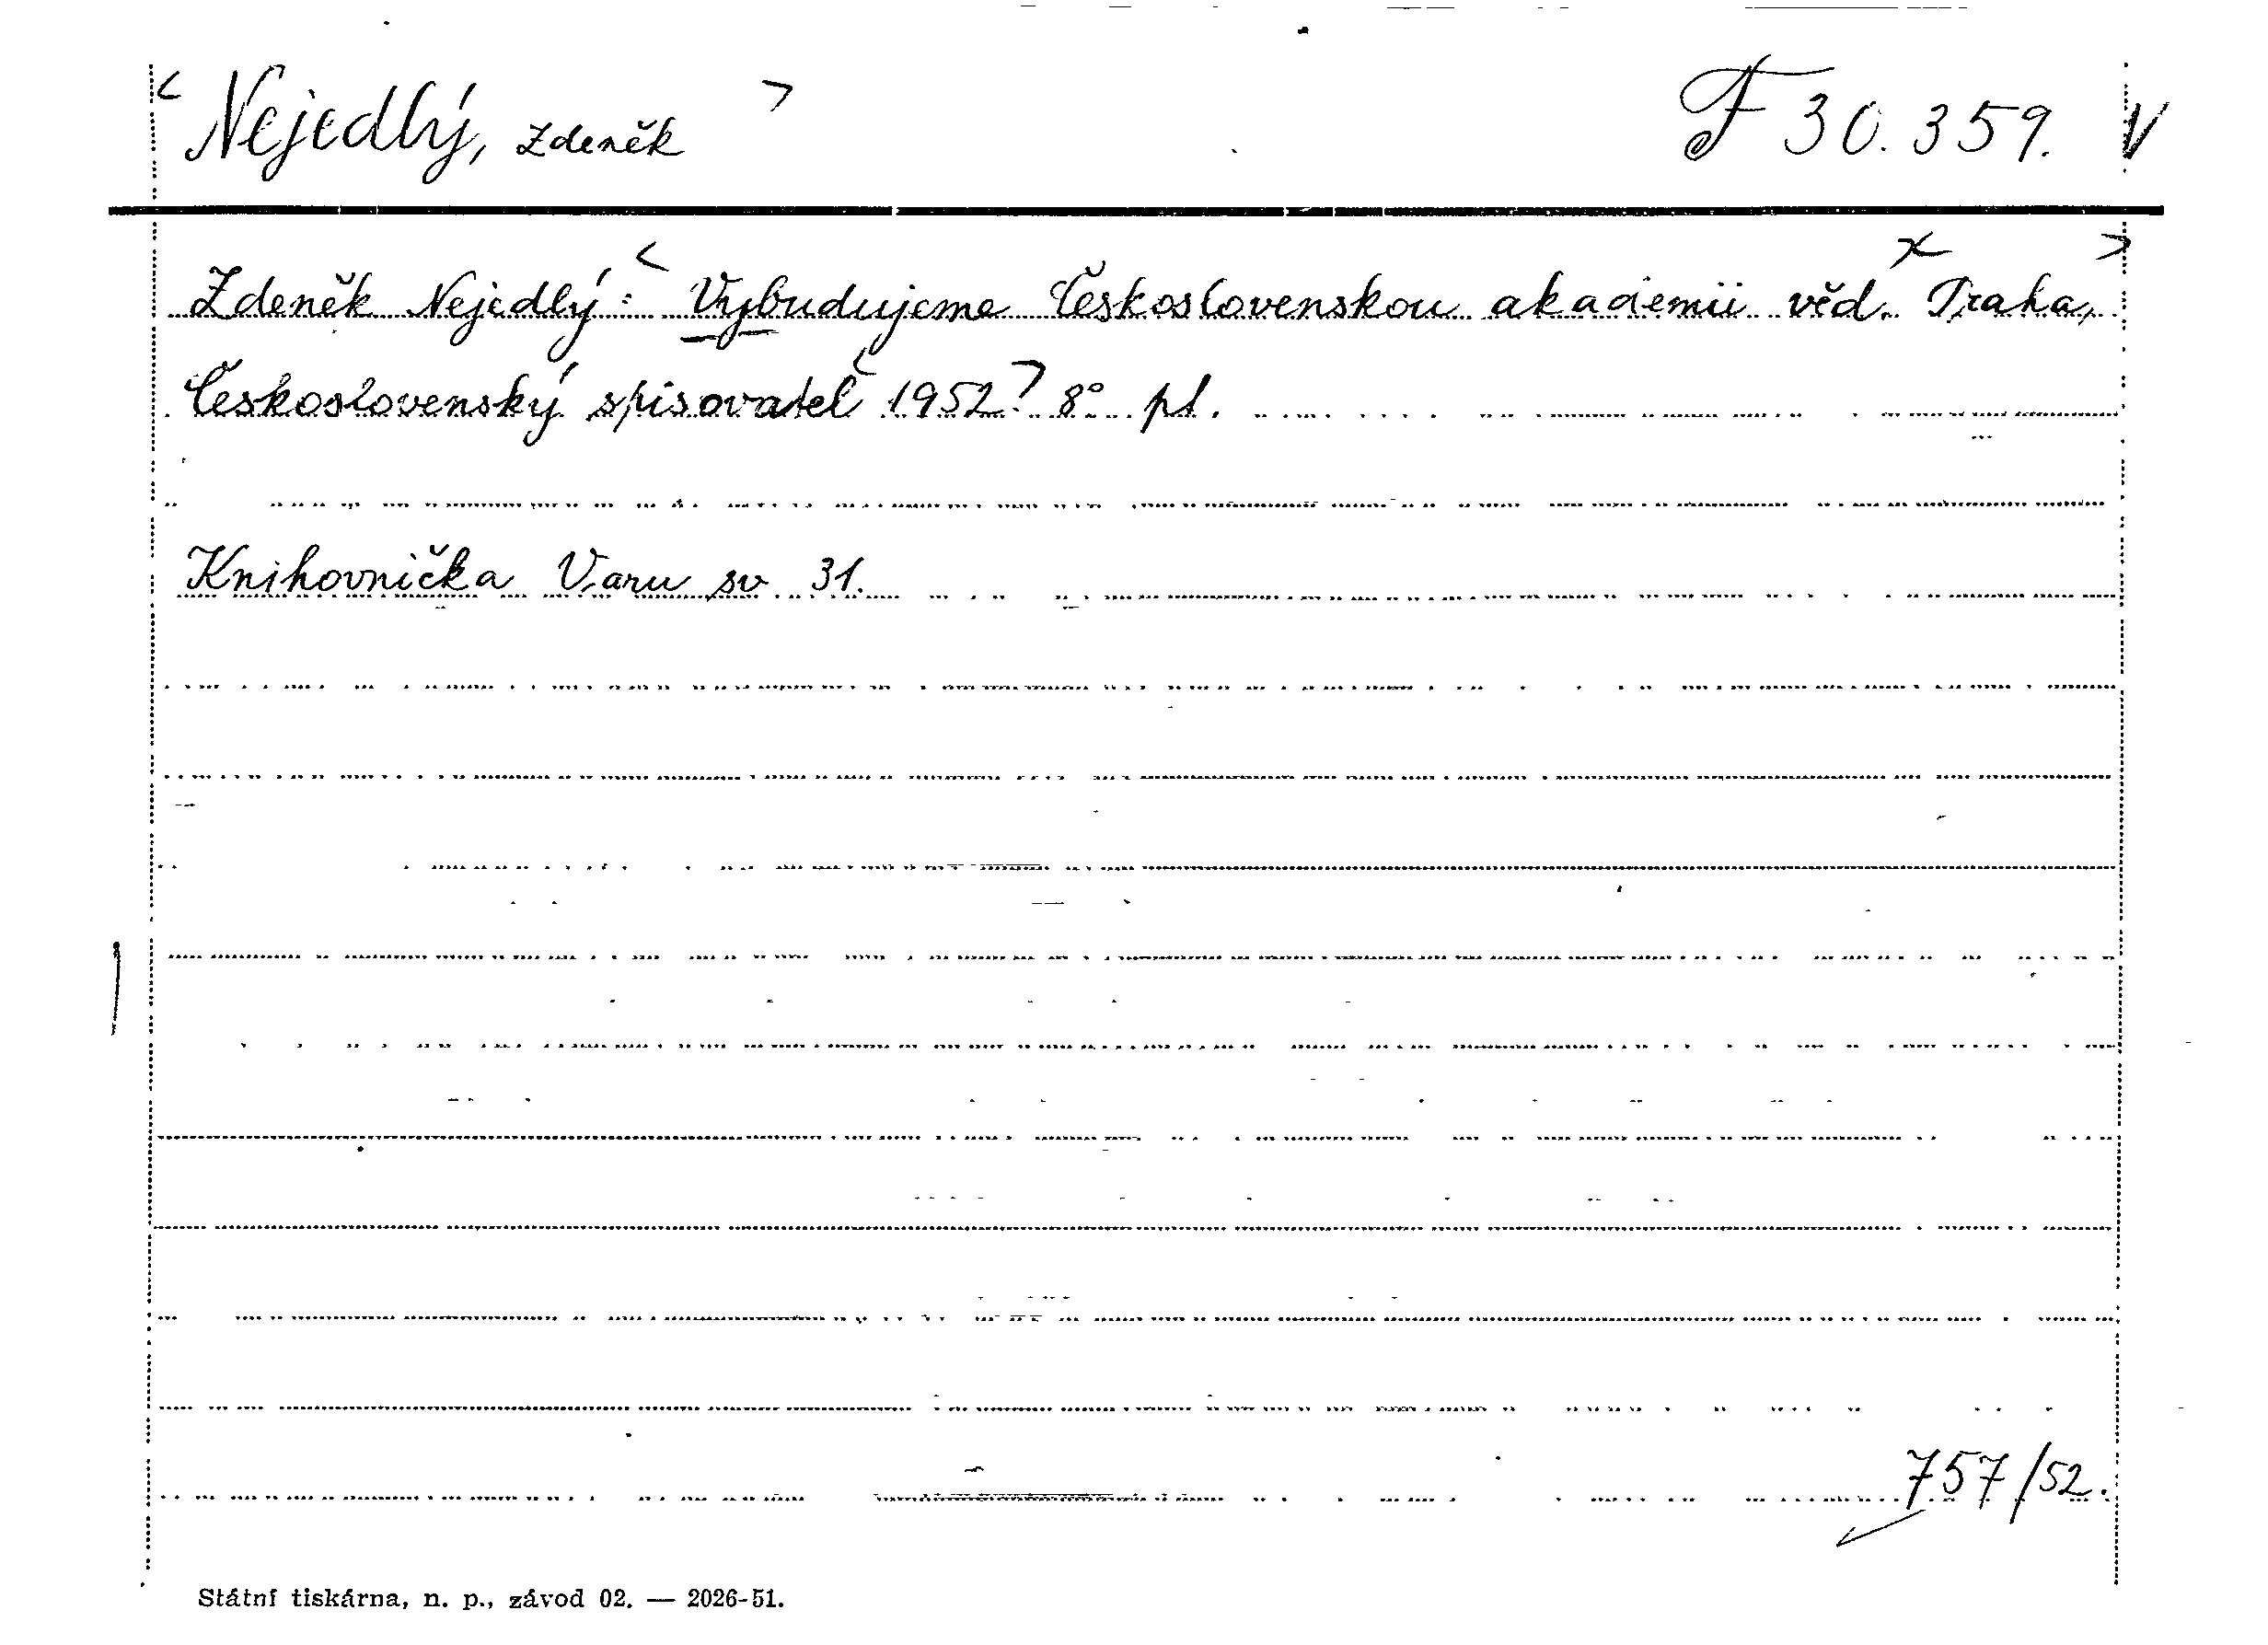 < Nejedlý, Zdeněk > F 30.359. V
Zdeněk Nejedlý: < Vybudujeme Československou akademii věd. x Praha, >
Československý spisovatel < 1952 > 8° pl.
Knihovnička Varu sv 31.
757/52.
Státní tiskárna, n. p., závod 02. — 2026-51.